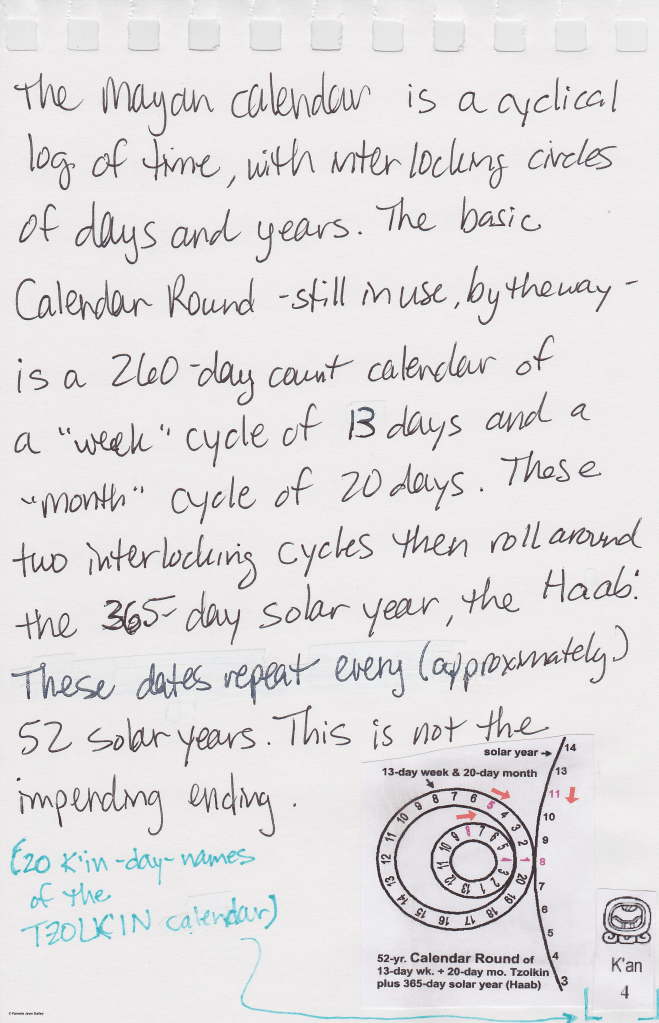 The Mayan calendar is a cyclical
log of time, with interlocking circles
of days and years. The basic
Calendar Round -still in use, by the way-
is a 260-day count calendar of
a "week" cycle of 13 days and a
"month" cycle of 20 days. These
two interlocking cycles then roll around
the 365-day solar year, the Haab'.
These dates repeat every (approximately)
52 solar years. This is not the
impending ending.
(20 K'in-day-names
of the
TZOLKIN calendar)
solar year
13-day week & 20-day month
14
13
11
10
9
8
7
6
5
4
3
1 2 3 4 5 6 7 8 9 10 11 12 13 14 15 16 17 18 19 20
1 2 3 4 5 6 7 8 9 10 11 12 13
52-yr. Calendar Round of
13-day wk. + 20-day mo. Tzolkin
plus 365-day solar year (Haab)
K'an
4
© Pamela Jean Dailey